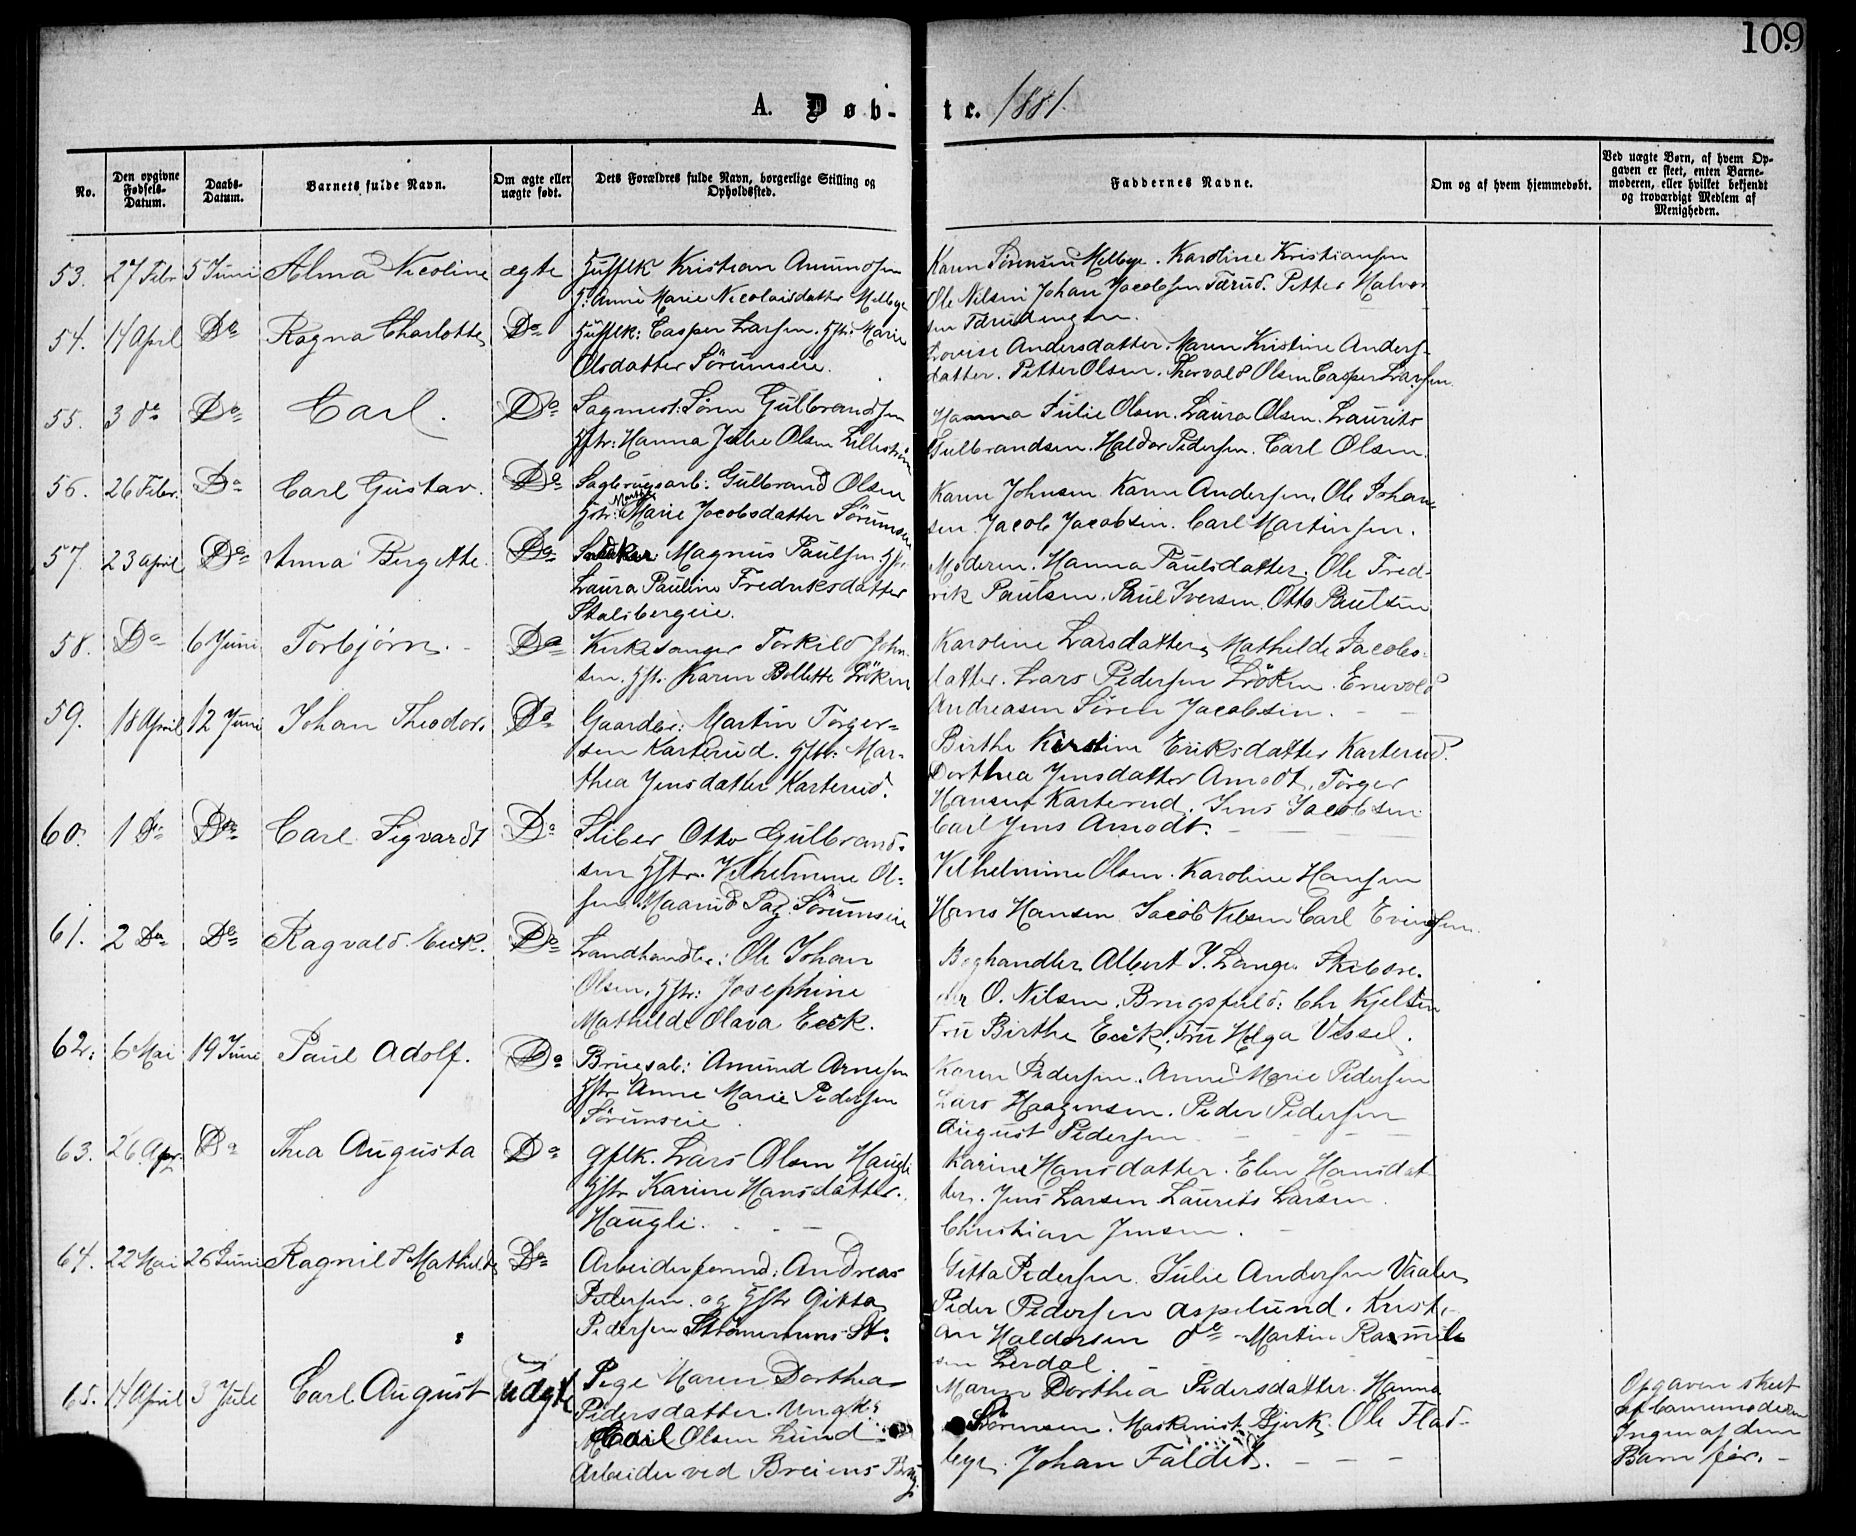 109
A. Døb-
te. 1881.
No.
Den opgivne
Fødsels-
Datum.
Daabs-
Datum.
Barnets fulde Navn.
Om ægte eller
uægte født.
Dets Forældres fulde Navn, borgerlige Stilling og
Opholdssted.
Faddernes Navne.
Om og af hvem hjemmedøbt.
Ved uægte Børn, af hvem Op-
gaven er skeet, enten Barne-
moderen, eller hvilket bekjendt
og troværdigt Medlem af
Menigheden.
53. 27 Febr 5 Juni Alma Nicoline ægte
Husflk Kristian Amundsen
H. Anne Marie Nicolaisdatter Melbye
Karen Sørensen Melbye. Karoline Kristiansen
Ole Nilsen Johan Jacobsen Tærud. Petter Halvor
sen Tærudengen.
54. 14 April Do Ragna Charlotte Do
Husflk: Casper Larsen. Hstr: Marie
Olsdatter Sörumseie.
Lovise Andersdatter. Maren Kristine Anders-
datter. Petter Olsen. Thorvald Olsen Casper Larsen
55. 3 do Do Carl. Do
Sagmest: Sören Gulbrandsen
Hstr: Hanna Julie Olsen Lilleström
Hanna Julie Olsen. Laura Olsen. Laurits
Gulbrandsen. Haldor Pedersen. Carl Olsen.
56. 26 Febr. Do Carl Gustav. Do
Sagbrugsarb: Gulbrand Olsen
Hstr: Marthe Marie Jacobsdatter Sörumseie
Karen Johnsen Karen Andersen, Ole Johan-
sen Jacob Jacobsen. Carl Martinsen.
57. 23 April Do Anna Bergitte. Do
Snedker: Magnus Paulsen Hstr.
Laura Pauline Fredriksdatter
Stalsbergeie.
Moderen. Hanna Paulsdatter, Ole Fred-
rik Paulsen. Paul Iversen. Otto Paulsen
58. Do 6 Juni Torbjørn. Do
Kirkesanger Torkild John
sen. Hstr. Karen Bollette Löken
Karoline Larsdatter, Mathilde Jacobs-
datter. Lars Pedersen Löken. Enevold
Andreasen Sören Jacobsen.
59. 18 April 12 Juni Johan Theodor. Do
Gaardbr: Martin Torger-
sen Karterud. Hstr: Mar-
thea Jensdatter Karterud.
Birthe Kirstine Eriksdatter Karterud.
Dorthea Jensdatter Amodt, Torger
Hansen Karterud. Jens Jacobsen
Carl Jens Amodt.
60. 1 do Do Carl Sigvardt Do
Sliber Otto Gulbrand-
sen Hstr. Vilhelmine Ol-
sen Maarud Sag. Sörumseie
Vilhelmine Olsen. Karoline Hansen
Hans Hansen Jacob Nilsen Carl Evensen.
61. 2 Do Do Ragvald Eeck. Do
Landhandler: Ole Johan
Olsen. Hstr: Josephine
Mathilde Olava Eeck.
Boghandler Albert J. Lange. Skibsre-
der O. Nilsen. Brugsfuld: Chr Kjelsen
Fru Birthe Eeck. Fru Helga Vessel.
62. 6 Mai 19 Juni Paul Adolf. Do
Brugsab: Amund Arnesen
Hstr Anne Marie Pedersen
Sörumseie.
Karen Pedersen. Anne Marie Pedersen
Lars Haagensen. Peder Pedersen
August Pedersen
63. 26. Apr. Do Thea Augusta Do
Gflk. Lars Olsen Haugli
Hstr Karine Hansdatter.
Haugli.
Karine Hansdatter. Elen Hansdat
ter. Jens Larsen Laurits Larsen
Christian Jensen.
64. 22 Mai 26 Juni Ragnild Mathilde Do
Arbeiderformd. Andreas
Pedersen og Hstr Gitta
Pedersen Strömmens St.
Gitta Pedersen. Julie Andersen Vaaler
Peder Pedersen Aspelund. Kristi-
an Haldorsen do Martin Rasmus
sen Lerdal.
65. 14 April 3 Jule Carl August uægte
Pige Maren Dorthea
Pedersdatter. Ungk:
Carl Olsen Lund
Arbeider ved Breiens Brug.
Maren Dorthea Pedersdatter. Hanna
Sörensen. Maskinist Bjerk, Ole Flad-
bye. Johan Faldet.
Opgaven skeet
af barnmoderen
Ingen af dem
Barn før.